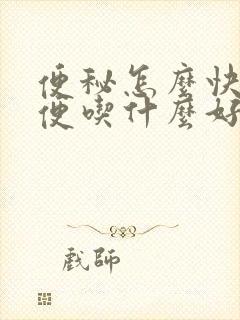 便秘怎麼快
便喫什麼好
戲師